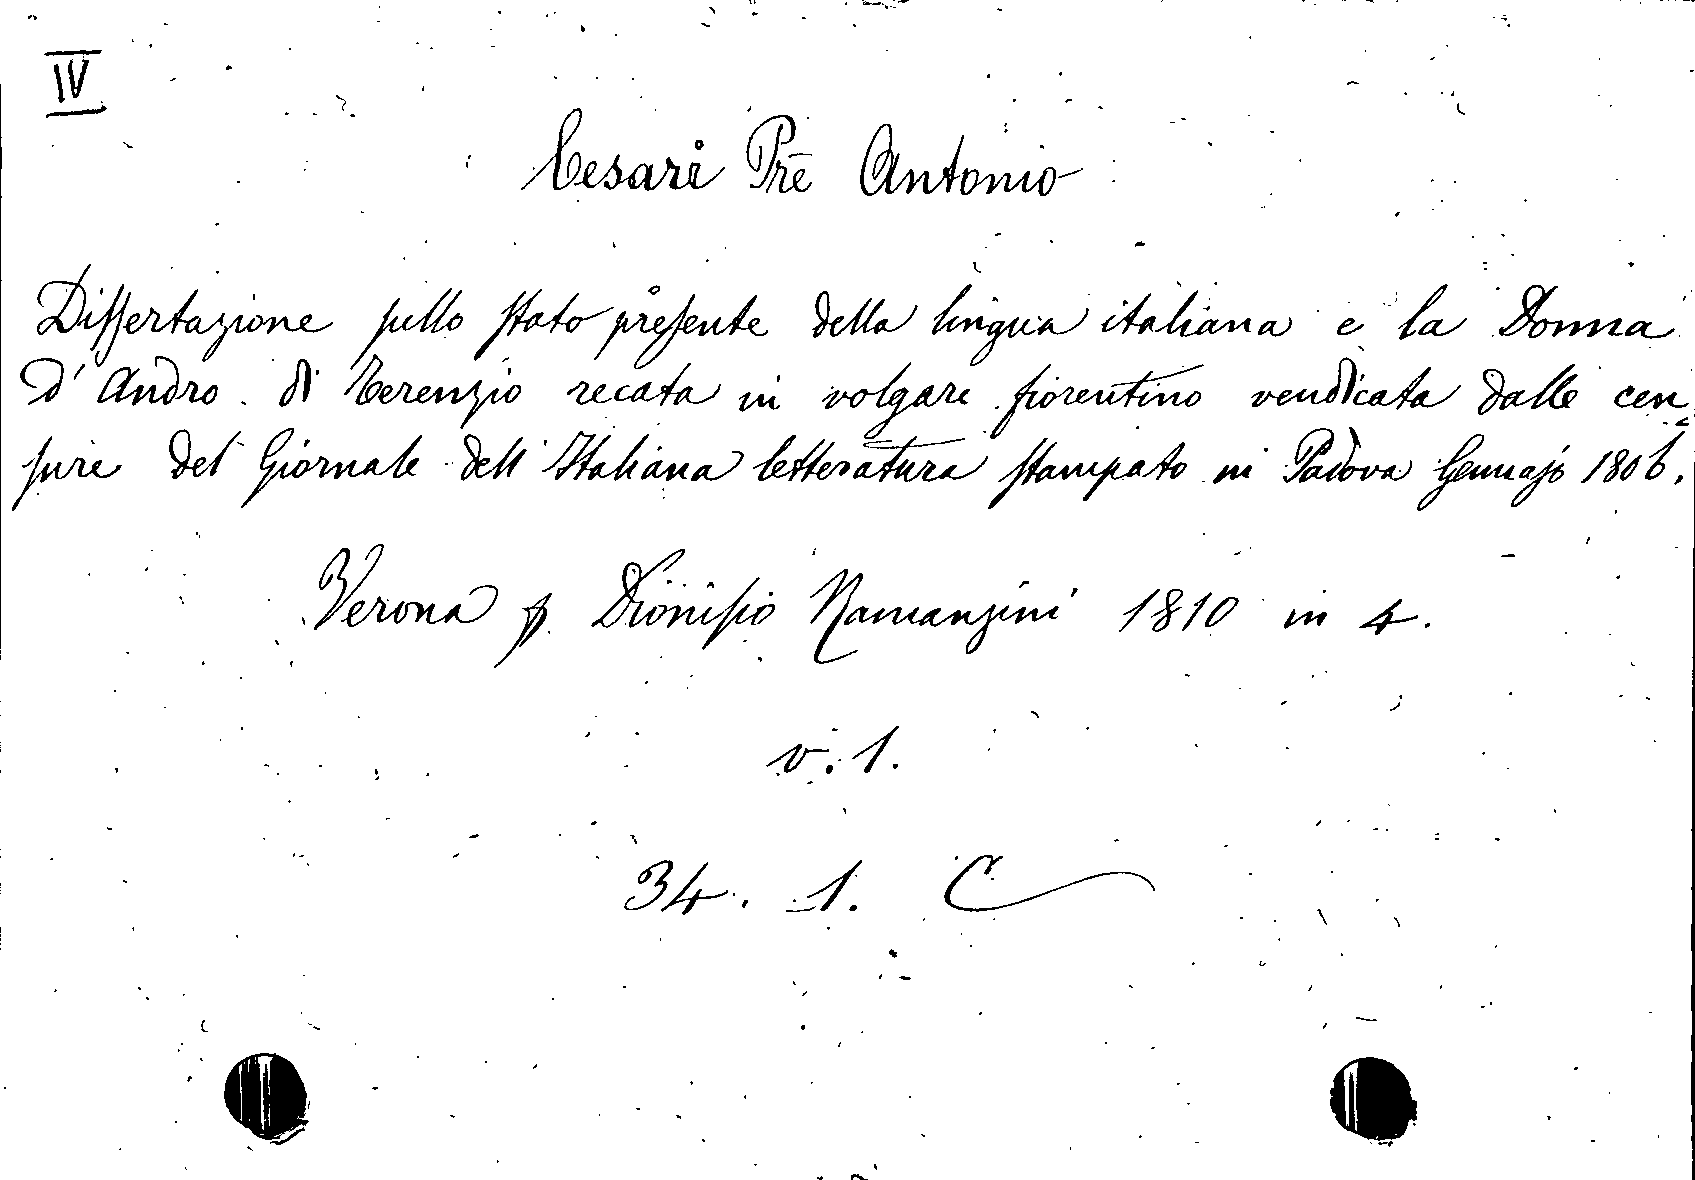 IV
Cesari Prē Antonio
Dissertazione sullo stato presente della lingua italiana e la Donna
d'Andro di Terenzio recata in volgare fiorentino vendicata dalle cen=
sure del Giornale dell'Italiana letteratura stampato in Padova Gennajo 1806.
Verona p. Dionisio Ramanzini 1810 in 4.
v. 1.
34. 1. C